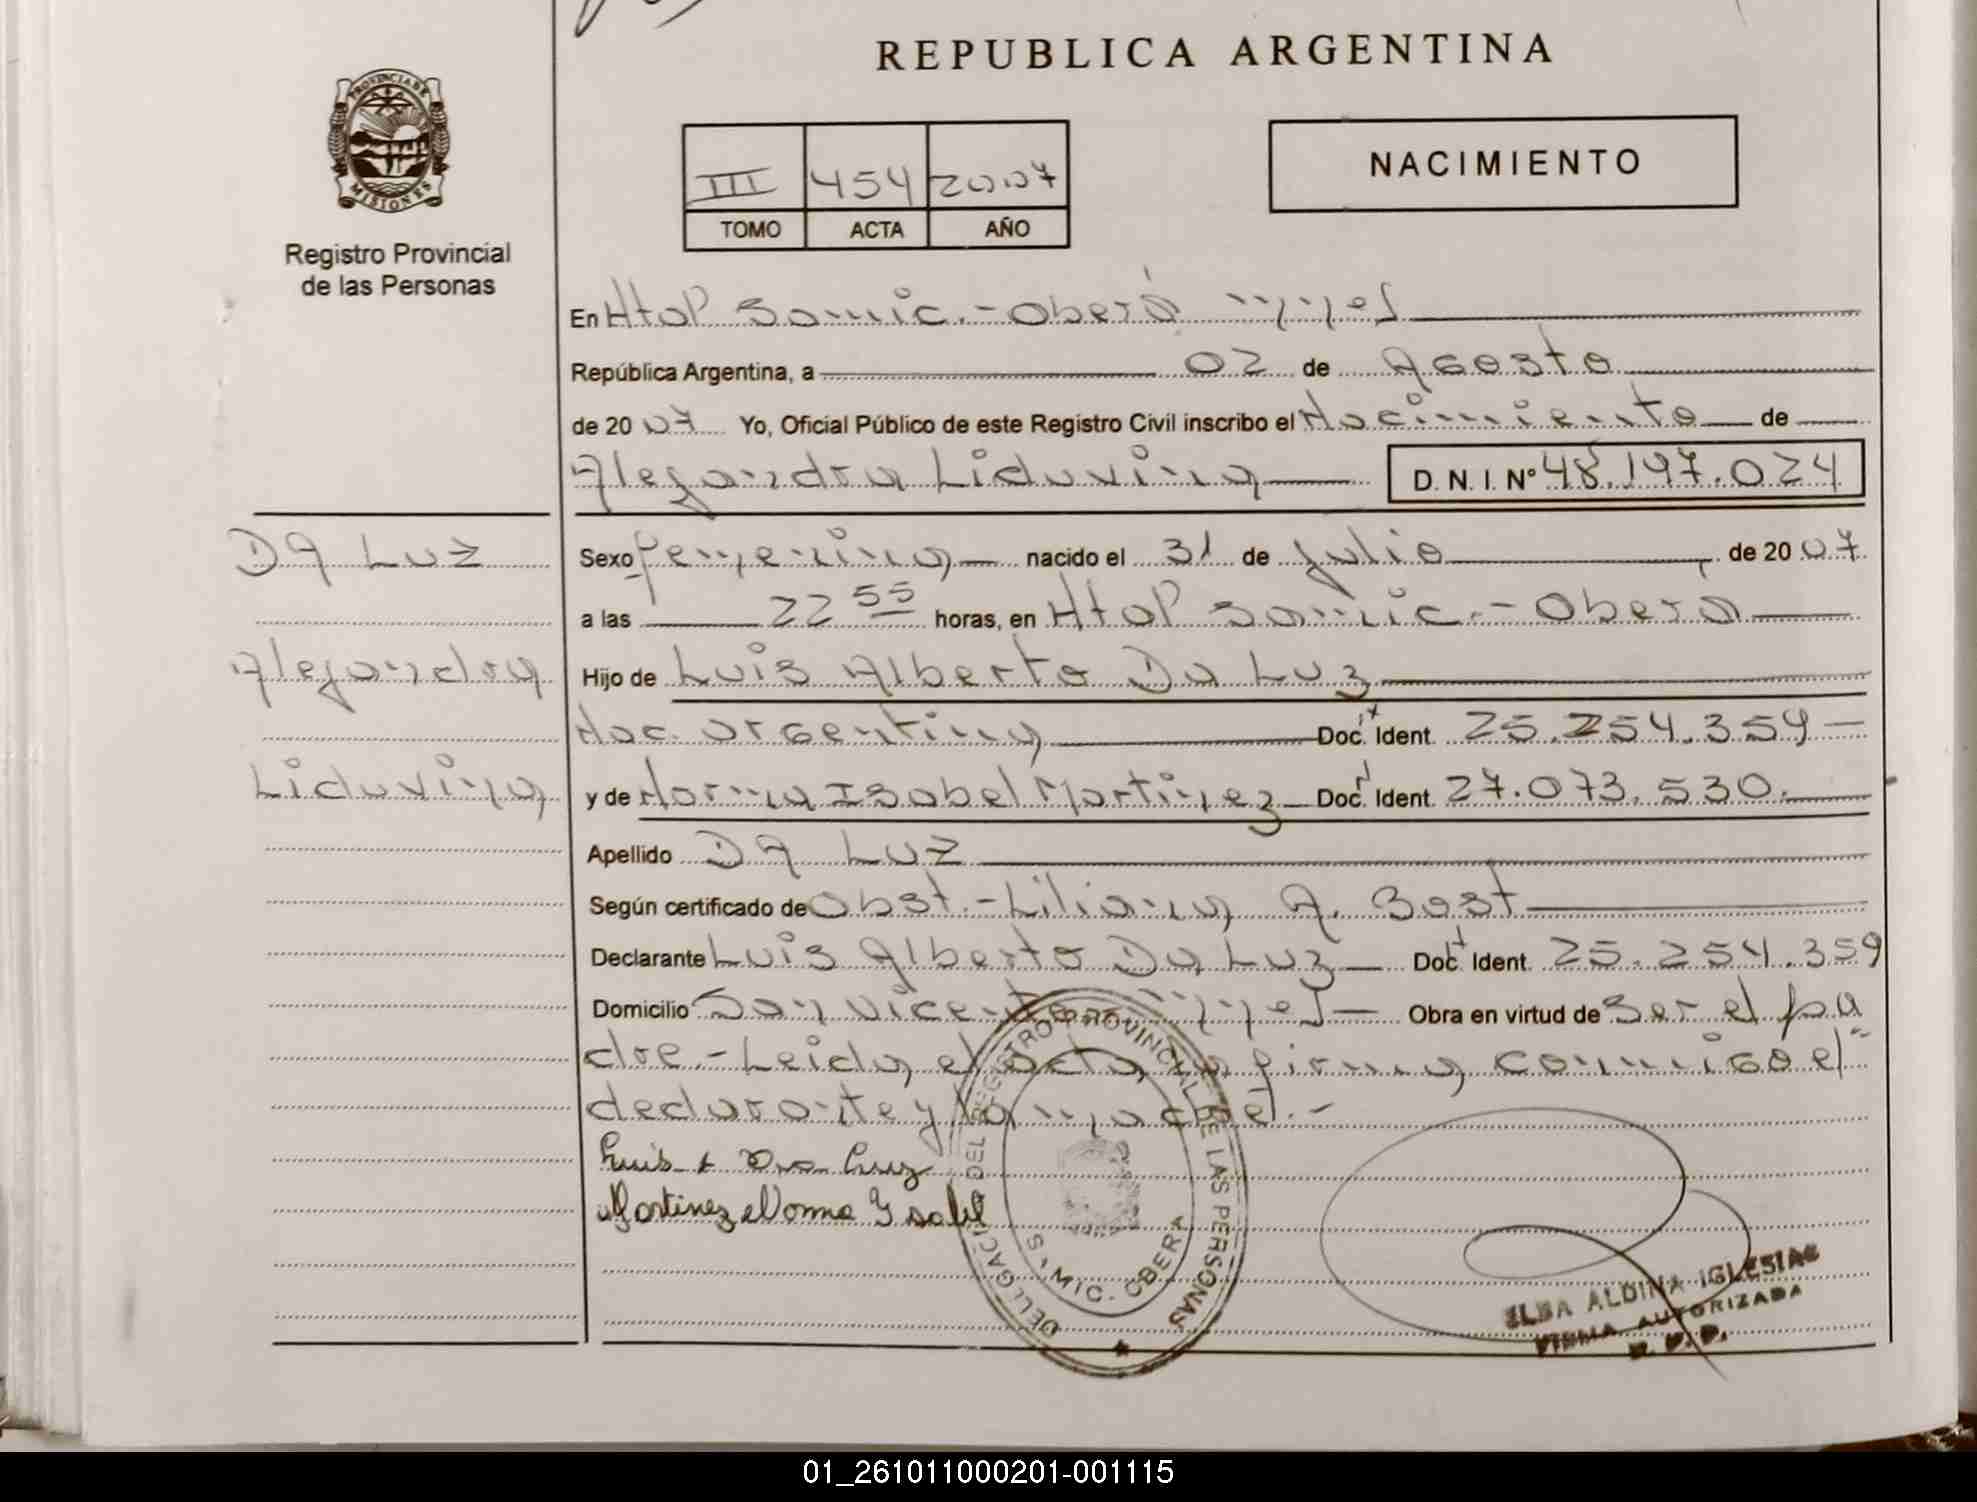 REPUBLICA ARGENTINA
PROVINCIA DE
MISIONES
Registro Provincial
de las Personas
III 454 2007
TOMO ACTA AÑO
NACIMIENTO
En Htol Samic.- Oberá mnes
República Argentina, a 02 de Agosto
de 2007 Yo, Oficial Público de este Registro Civil inscribo el Nacimiento de
Alejandra Liduvina D. N. I. Nº 48.197.024
Da Luz
Alejandra
Liduvina
Sexo femenino nacido el 31 de julio de 2007
a las 22 55 horas, en Htal Samic.- Oberá
Hijo de Luis Alberto Da Luz
Nac. argentina Doc. Ident. 25.254.359
y de Norma Isabel Martinez Doc. Ident. 27.073.530.
Apellido Da Luz
Según certificado de Obst.- Liliana A. Bost
Declarante Luis Alberto Da Luz Doc. Ident. 25.254.359
Domicilio San Vicente mnes Obra en virtud de ser el pa
dre.- Leida el acta la firma conmigo el
declarante y la madre.-
Luis A Da Luz
Martinez Norma Ysabel
DELEGACION DEL REGISTRO PROVINCIAL DE LAS PERSONAS
SAMIC. OBERA
ELBA ALDINA IGLESIAS
FIRMA AUTORIZADA
R. P. P.
01_261011000201-001115